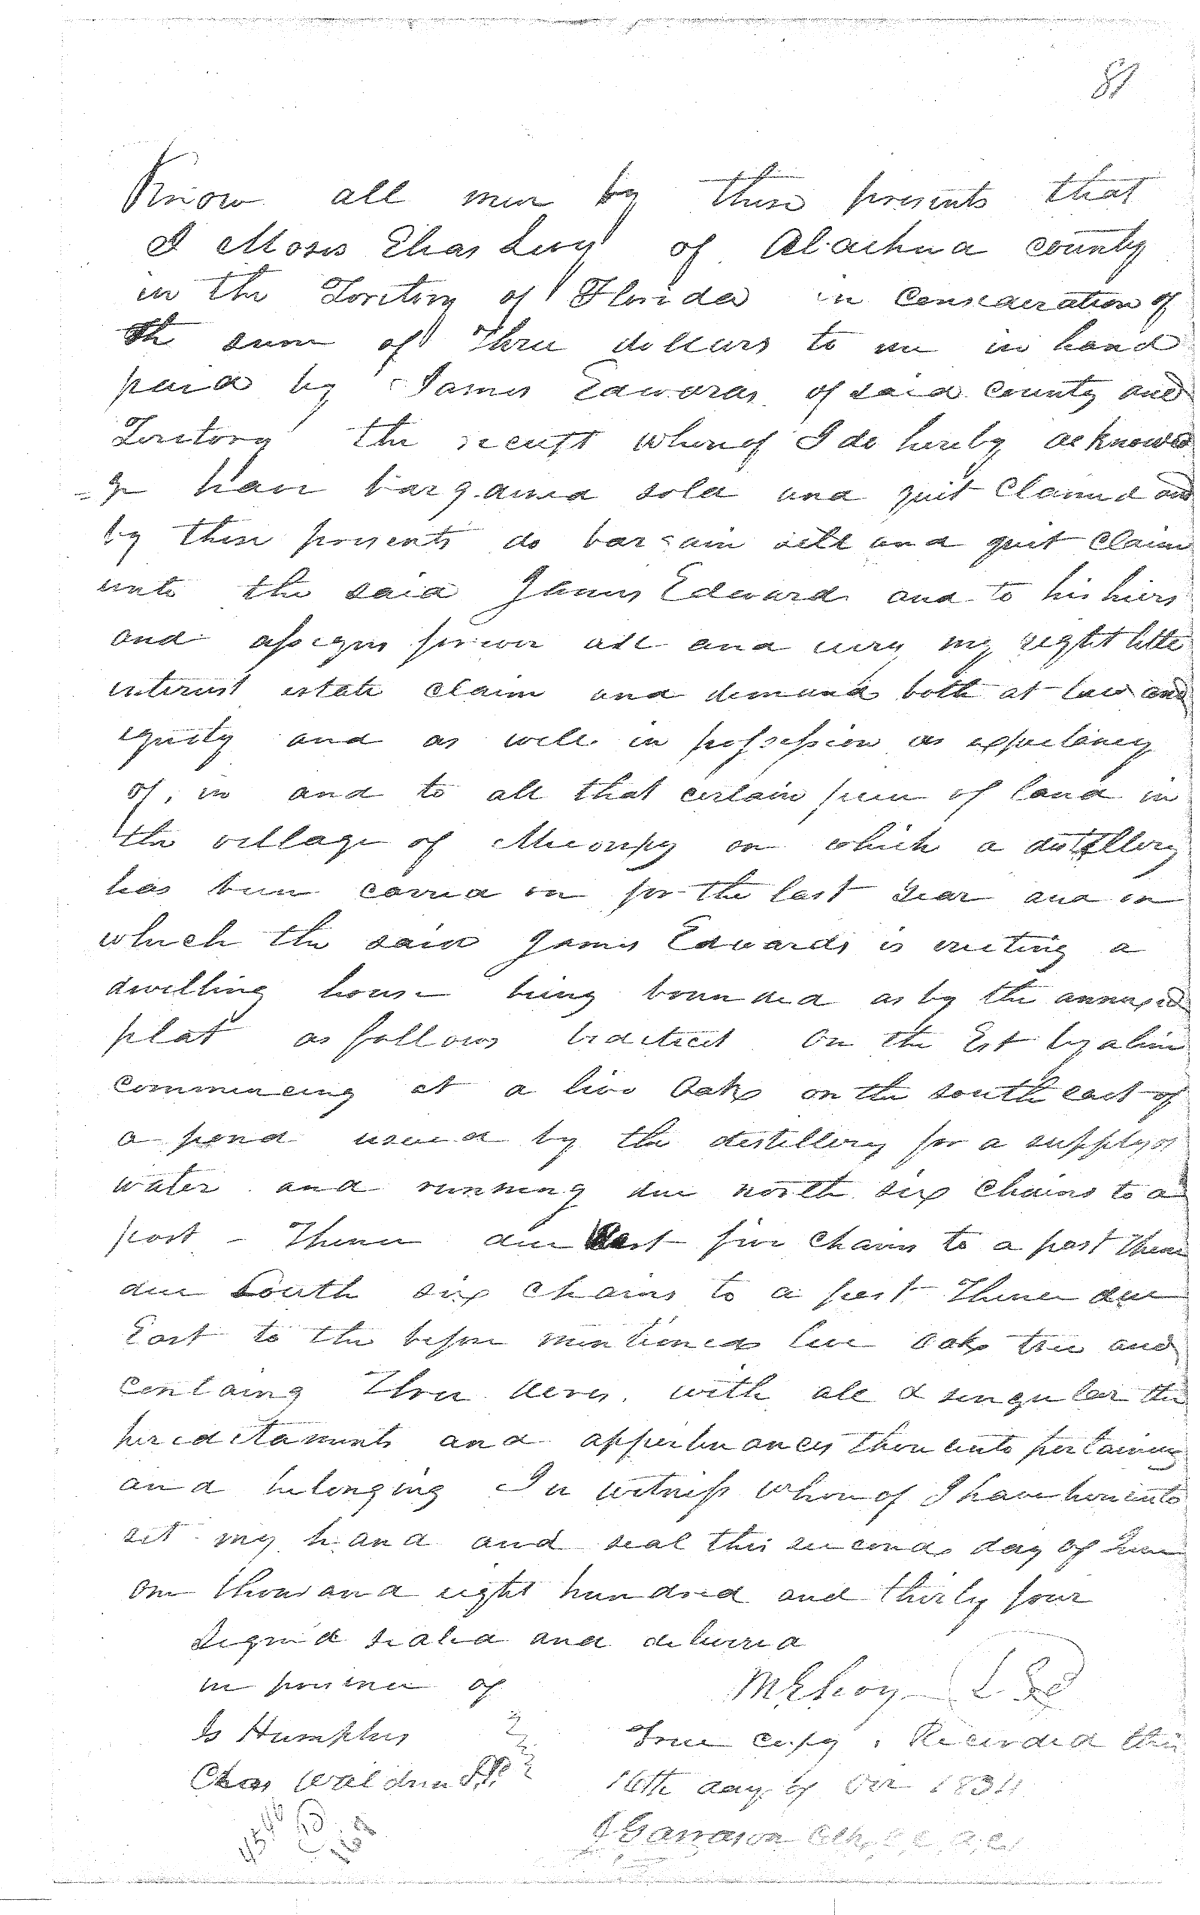 81
Know all men by these presents that
I Moses Elias Levy of Alachua county
in the Toritory of Florida in Consideration of
the sum of Three dollars to me in hand
paid by James Edwards of said County and
Toritory the receipt whereof I do hereby acknowled
=ge have bargained sold and quit Claimed and
by these presents do bargain sell and quit Claim
unto the said James Edward and to his hiers
and assigns forever all and every my right title
interest estate claim and demand both at law and
equity and as well in possession as expectancy
of, in and to all that certain piece of land in
the village of Micanopy on which a distillery
has been carried on for the last year and on
which the said James Edwards is erecting a
dwelling house being bounded as by the annexed
plat as follows to On the Est by a line
commencing at a live Oak on the south east of
a pond used by the distillery for a supply of
water and running due north six Chains to a
post - Thence due West five chains to a post Thence
due South six chains to a post Thence due
East to the before mentioned live oak tree and
containg Three Acres. with all & singular the
hereditaments and appertenances thereunto pertaining
and belonging In witness whereof I have hereunto
set my hand and seal this second day of June
one thousand eight hundred and thirty four
Signed sealed and delivered
in presence of
M E Levy L S
Is Humphres
True copy. Recorded this
Chas Waldron J.P.
16th day of 1834
J Garrason Clk, C, C, A, C,